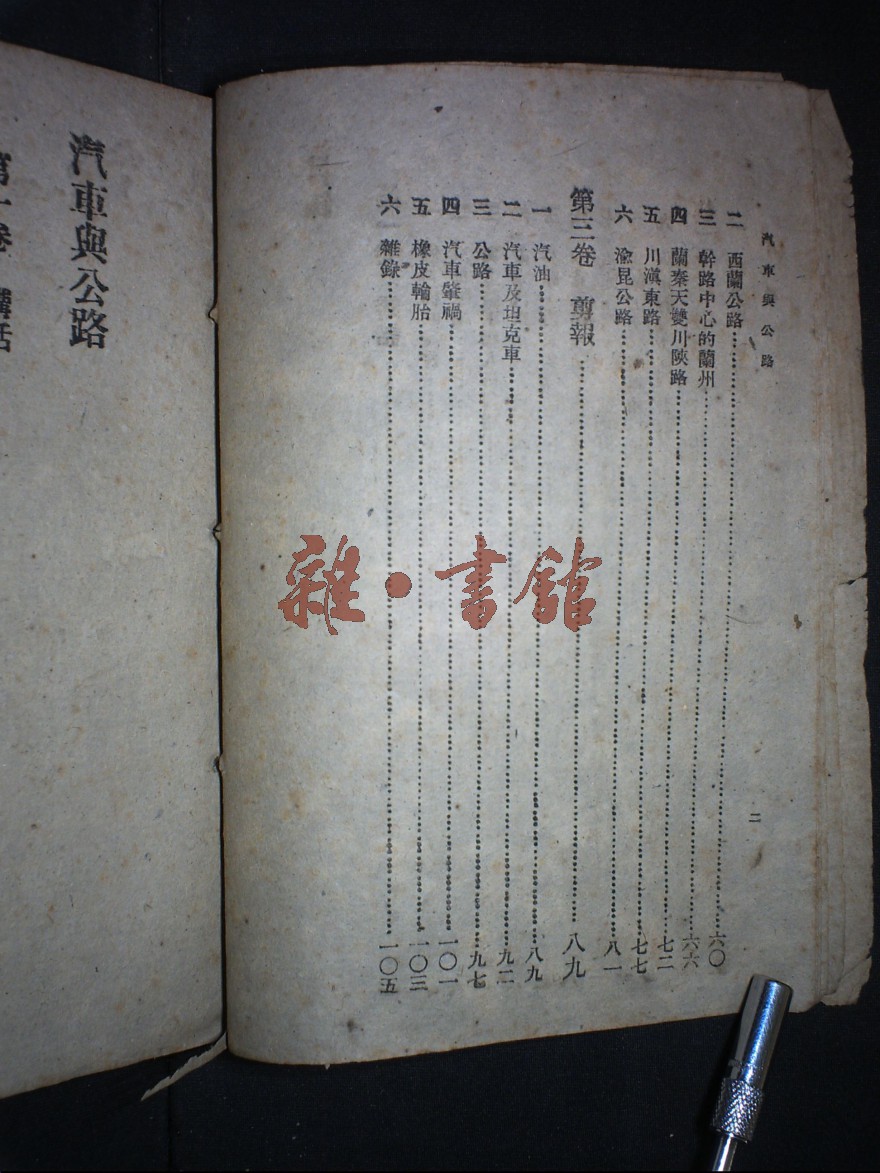 汽車與公路
二
二 西蘭公路……六〇
三 幹路中心的蘭州……六六
四 蘭秦天雙川陝路……七二
五 川滇東路……七七
六 渝昆公路……八一
第三卷 剪報……八九
一 汽油……八九
二 汽車及坦克車……九二
三 公路……九七
四 汽車肇禍……一〇一
五 橡皮輪胎……一〇三
六 雜錄……一〇五
汽車與公路
第一卷 講話
雜·書館